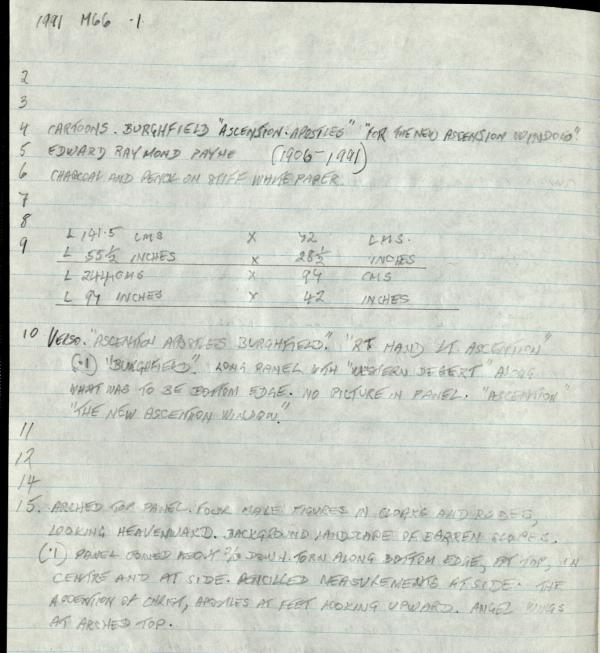 1991 M66 ·1
2
3
4 CARTOONS. BURGHFIELD "ASCENSION · APOSTLES" "FOR THE NEW ASCENSION WINDOW"
5 EDWARD RAYMOND PAYNE (1906-1991)
6 CHARCOAL AND PENCIL ON STIFF WHITE PAPER.
7
8
9 L 141.5 CMS X 72 CMS.
L 55½ INCHES X 28½ INCHES
L 244 CMS X 94 CMS
L 97 INCHES X 42 INCHES
10 VERSO. "ASCENTION APOSTLES BURGHFIELD." "RT HAND LT ASCENTION"
(·1) "BURGHFIELD". LONG PANEL WITH "WESTERN DESERT" ALONG
WHAT WAS TO BE BOTTOM EDGE. NO PICTURE IN PANEL. "ASCENTION"
"THE NEW ASCENTION WINDOW."
11
12
14
15. ARCHED TOP PANEL. FOUR MALE FIGURES IN CLOAKS AND ROBES,
LOOKING HEAVENWARD. BACKGROUND LANDSCAPE OF BARREN SLOPES.
(·1) PANEL JOINED ABOUT ⅔ DOWN. TORN ALONG BOTTOM EDGE, AT TOP, IN
CENTRE AND AT SIDE. PENCILLED MEASUREMENTS AT SIDE. THE
ASCENTION OF CHRIST, APOSTLES AT FEET LOOKING UPWARD. ANGEL WINGS
AT ARCHED TOP.